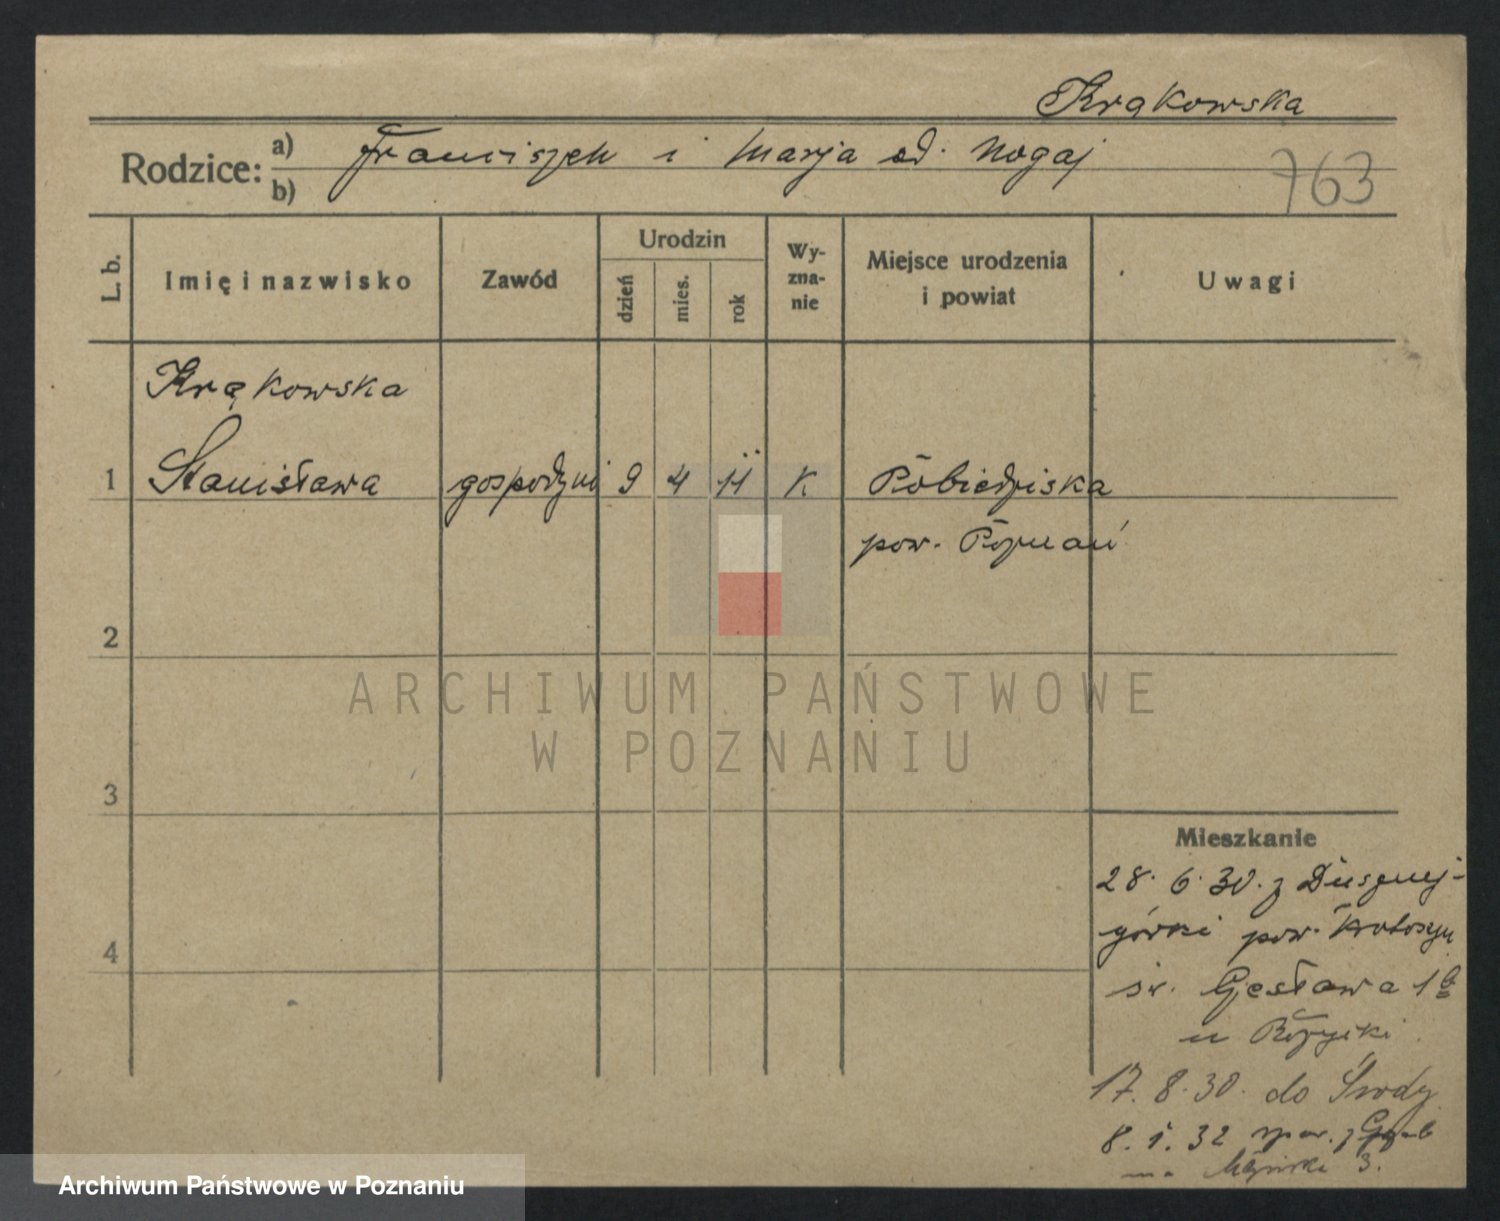 Krąkowska
Rodzice: a) Franciszek i Marja od. Nogaj
b)
763
L. b.
Imię i nazwisko
Zawód
Urodzin
dzień
mies.
rok
Wy-
zna-
nie
Miejsce urodzenia
i powiat
Uwagi
Krąkowska
1 Stanisława gospodyni 9 4 11 K Pobiedziska
pow. Poznań
2
3
4
ARCHIWUM PAŃSTWOWE
W POZNANIU
Mieszkanie
28. 6. 30. z Dusznej-
górki pow. Krotoszyn
św. Czesława 1
u Różycki
17. 8. 30. do Środy
8. 1. 32 z
3.
Archiwum Państwowe w Poznaniu